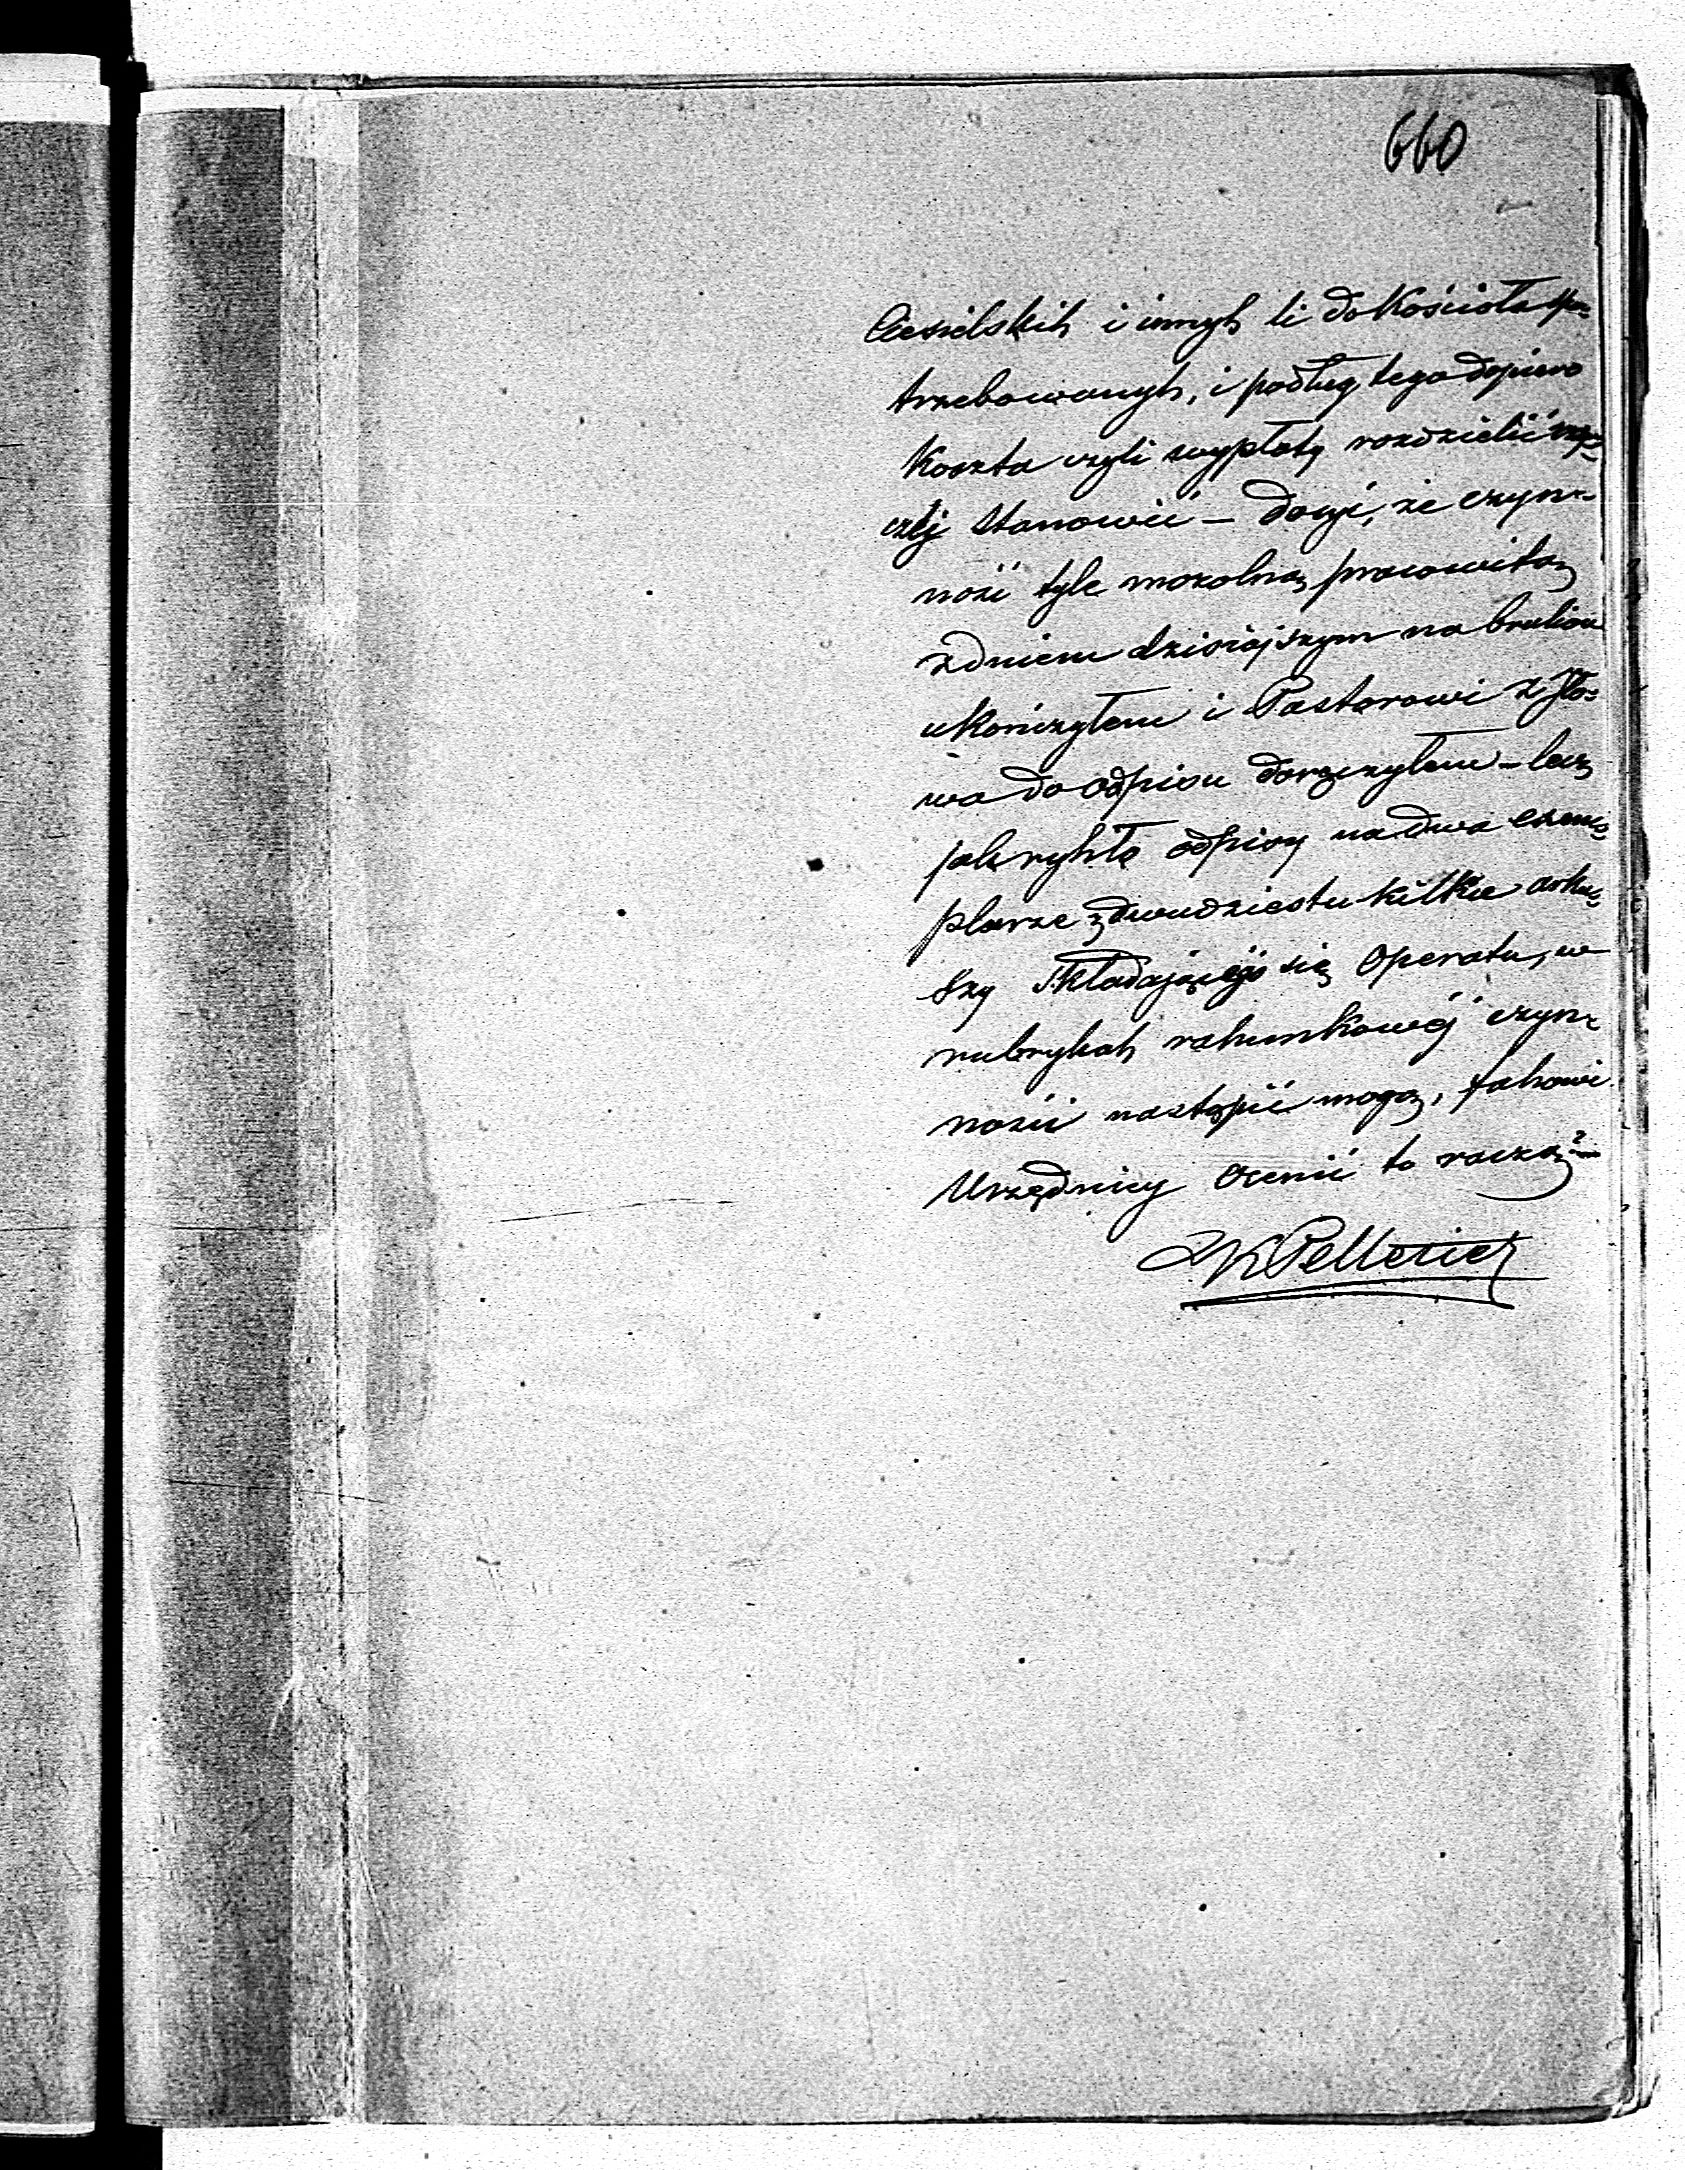 660
Ciesielskih i innyh li do Kościoła po=
trzebowanyh, i podług tego dopiero
Koszta czyli wypłaty rozdzielić
czéj Stanowić – dosyć, że czyn=
ność tyle mozolną pracowitą
z dniem dzisiajszym na brulion
ukończyłem i Pastorowi z Iło=
wa do odpisu doręczyłem – lecz
jak ryhło odpisy na dwa exem=
plarze z dwudziestu kilku arku=
szy składającego się Operatu, w
rubrykah rahunkowéj czyn=
ności nastąpić mogą, fahowi
Urzędnicy ocenić to raczą? –
Pelletier